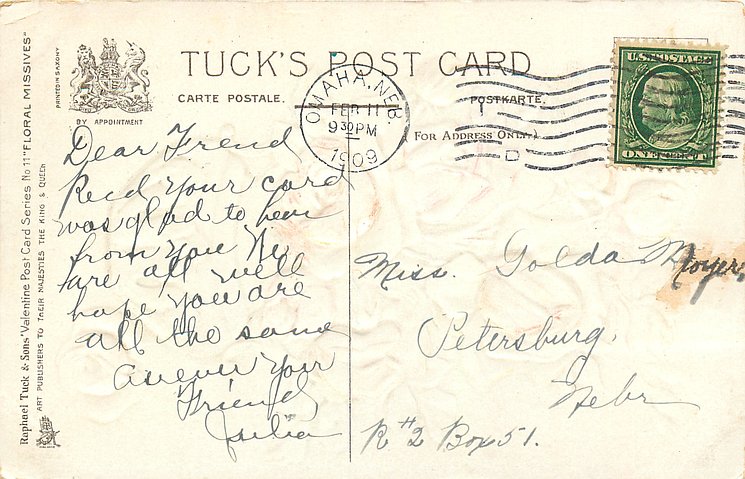 Raphael Tuck & Sons' "Valentine Post Card Series No 11" "FLORAL MISSIVES"
ART PUBLISHERS TO THEIR MAJESTIES THE KING & QUEEN
PRINTED IN SAXONY
BY APPOINTMENT
TUCK'S POST CARD
CARTE POSTALE.
POSTKARTE.
(FOR ADDRESS ONLY.)
OMAHA, NEB.
FEB 11
9 30 PM
1909
D
U.S. POSTAGE
ONE CENT
Dear Frend
Recd your card
was glad to hear
from you We
are all well
hope you are
all the same
as ever your
Friend
Julia
Miss. Golda Moyer
Petersburg,
Nebr
R #2 Box 51.